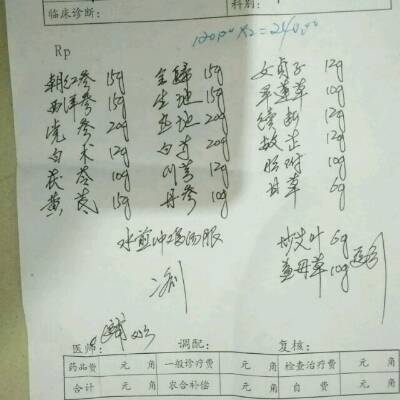 临床诊断: 科别:
120.00×2=240.00
Rp
朝红参 15g 全归 15g 女贞子 12g
西洋参 15g 生地 15g 旱莲草 10g
党参 20g 熟地 20g 续断 12g
白术 12g 白芍 20g 故芷 12g
茯苓 10g 川芎 12g 10g
黄芪 15g 丹参 10g 甘草 6g
水煎冲 服 炒艾叶 6g
益母草 10g
二剂
医师: 调配: 复核:
药品费 元 角 一般诊疗费 元 角 检查治疗费 元 角
合计 元 角 农合补偿 元 角 自费 元 角